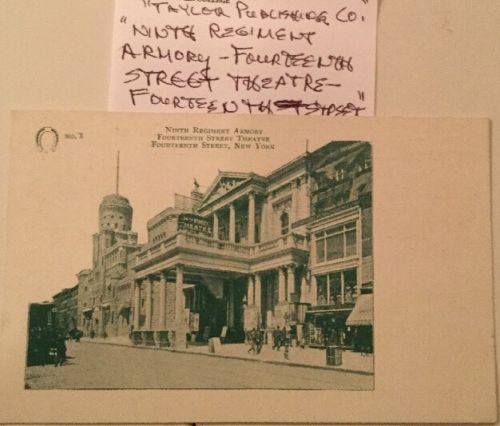 "TAYLOR PUBLISHING CO."
"NINTH REGIMENT
ARMORY - FOURTEENTH
STREET THEATRE -
FOURTEENTH STREET"
NO. 3
NINTH REGIMENT ARMORY
FOURTEENTH STREET THEATRE
FOURTEENTH STREET, NEW YORK
THEATRE